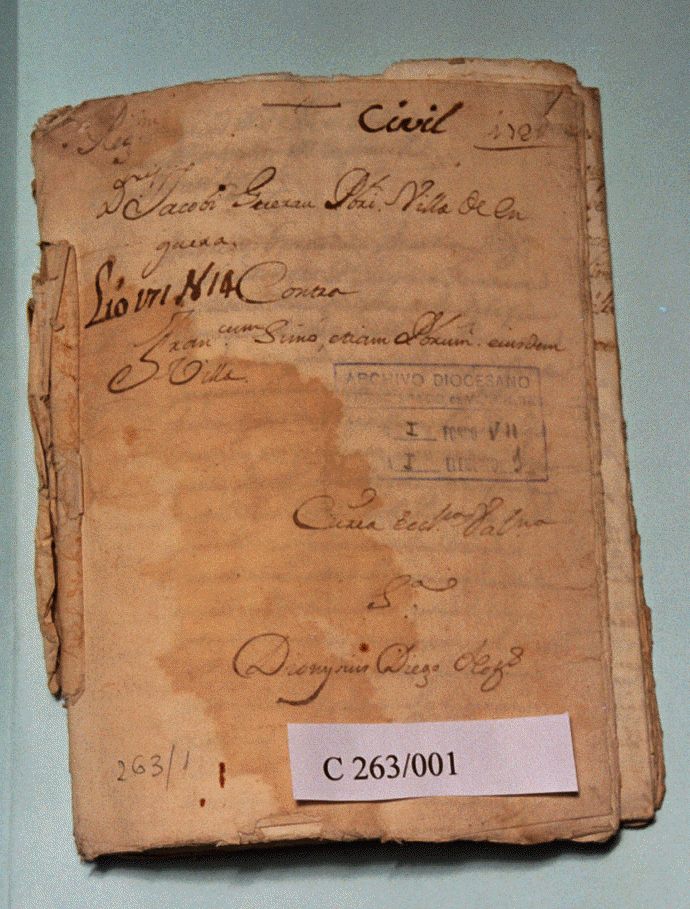 Civil
D.r Jacobi Guerau Pbri. Villa de En
guera.
Lio 171 N 14 Contra
Fran.cum Simó, etiam Pbrum. eiusdem
Villa.
ARCHIVO DIOCESANO
I FONDO VII
I
Curia Eccl.ca Valna
S.a
Dionysius Diego
263/1
C 263/001